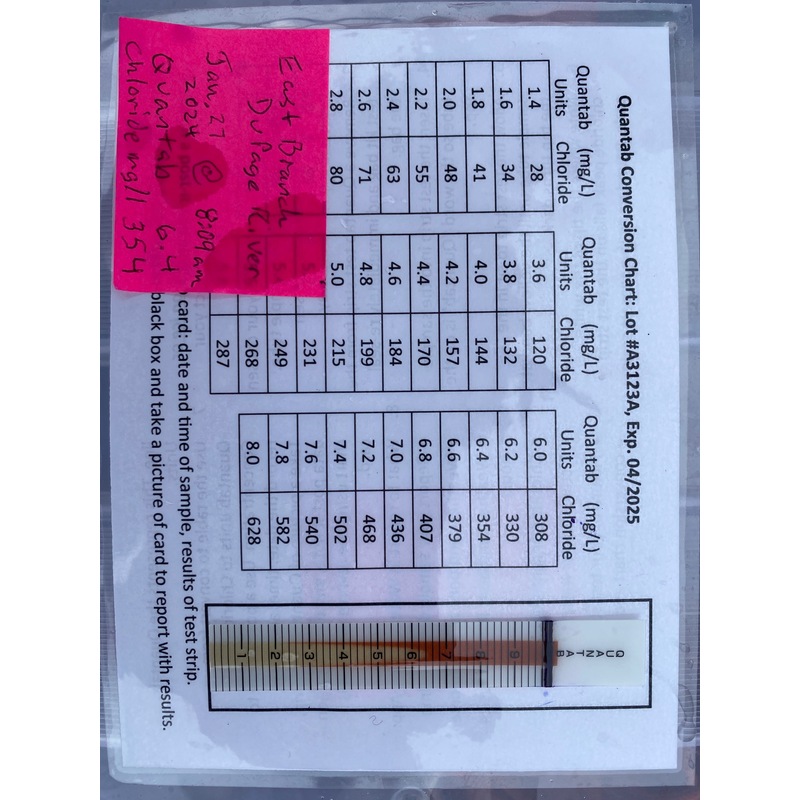 Quantab Conversion Chart: Lot #A3123A, Exp. 04/2025
Quantab (mg/L) Quantab (mg/L) Quantab (mg/L)
Units Chloride Units Chloride Units Chloride
1.4 28 3.6 120 6.0 308
1.6 34 3.8 132 6.2 330
1.8 41 4.0 144 6.4 354
2.0 48 4.2 157 6.6 379
2.2 55 4.4 170 6.8 407
2.4 63 4.6 184 7.0 436
2.6 71 4.8 199 7.2 468
2.8 80 5.0 215 7.4 502
231 7.6 540
249 7.8 582
268 8.0 628
287
card: date and time of sample, results of test strip.
black box and take a picture of card to report with results.
East Branch
DuPage River
Jan, 27
2024 @ 8:09 am
Quantab 6.4
Chloride mg/l 354
QUANTAB
1 2 3 4 5 6 7 8 9